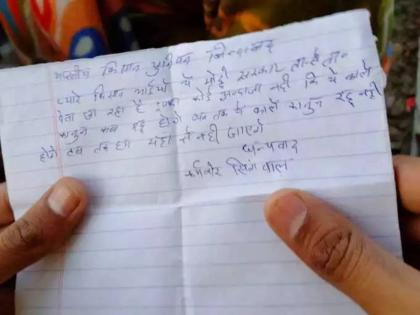 भारतीय किसान युनियन जिन्दाबाद
प्यारे किसान भाईयों ये मोदी सरकार तारीख ता-
देता जा रहा है इसका कोई अन्दाजा नहीं कि ये काले
कानून कब रद्द होंगे जब तक ये काले कानून रद्द नहीं
होंगे तब तक हम यहां से नहीं जाएंगे
धन्यवाद
कर्मवीर सिंगवाल